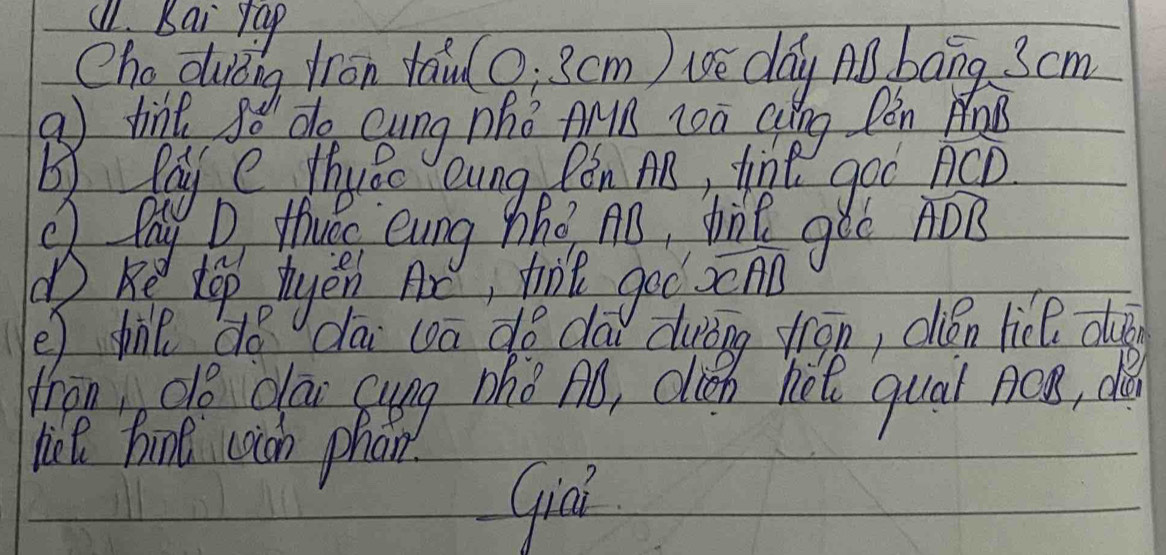 II. Bài tập
Cho đường tròn tâm (O; 3cm) vẽ dây AB bằng 3cm
a) tính số đo cung nhỏ AMB và cung lớn AnB
b) lấy C thuộc cung lớn AB, tính góc ACD.
c) lấy D, thuộc cung nhỏ AB, tính góc ADB
d) Kẻ tiếp tuyến Ax, tính góc xAB
e) tính độ dài và độ dài đường tròn, diện tích đường
tròn, độ dài cung nhỏ AB, diện tích quạt AOB, diện
tích hình viên phân.
Giải